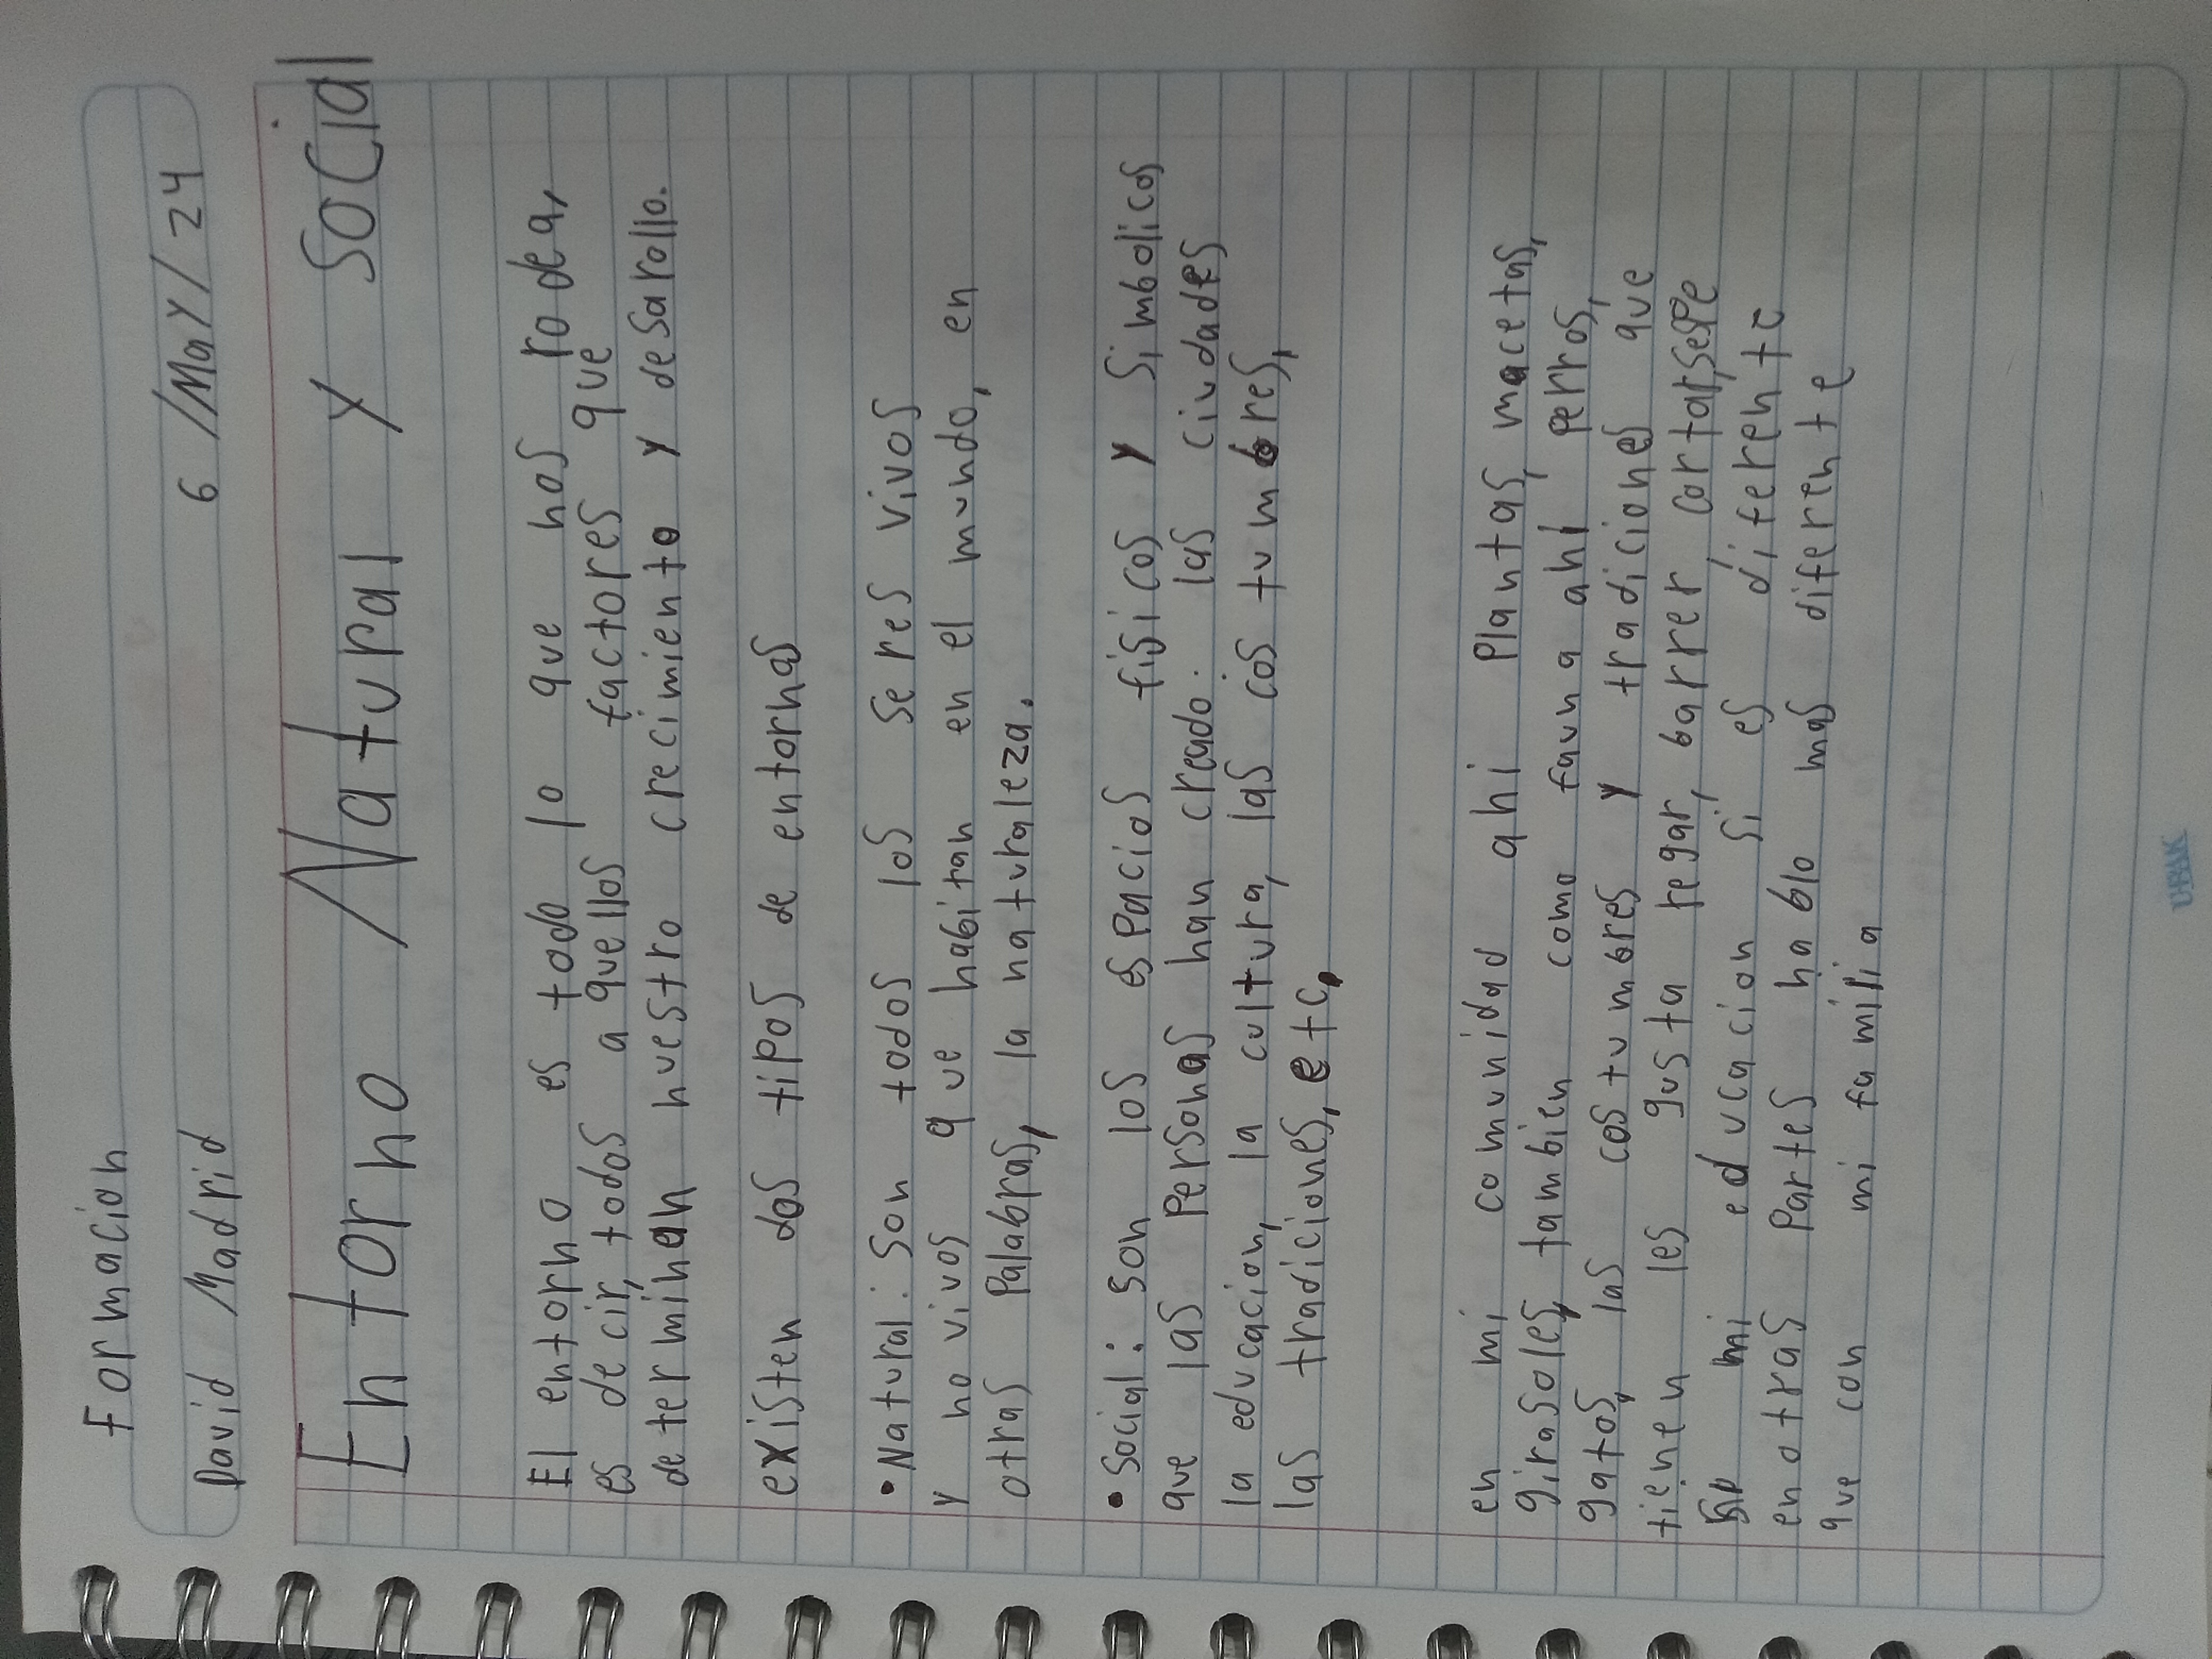 Formacion
David Madrid 6 /May/ 24
Entorno Natural y Social
El entorno es todo lo que nos rodea,
es decir, todos aquellos factores que
determinan nuestro crecimiento y desarollo.
existen dos tipos de entornos
• Natural: Son todos los seres vivos
y no vivos que habitan en el mundo, en
otras Palabras, la naturaleza.
• Social: Son los espacios fisicos y simbolicos
que las Personas han creado: las ciudades
la educacion, la cultura, las costumbres,
las tradiciones, etc,
en mi comunidad ahi Plantas, macetas,
girasoles, tambien como fauna ahi perros,
gatos, las costumbres y tradiciones que
tienen les gusta regar, barrer cortar
mi educacion si es diferente
en otras Partes hablo mas diferente
que con mi familia